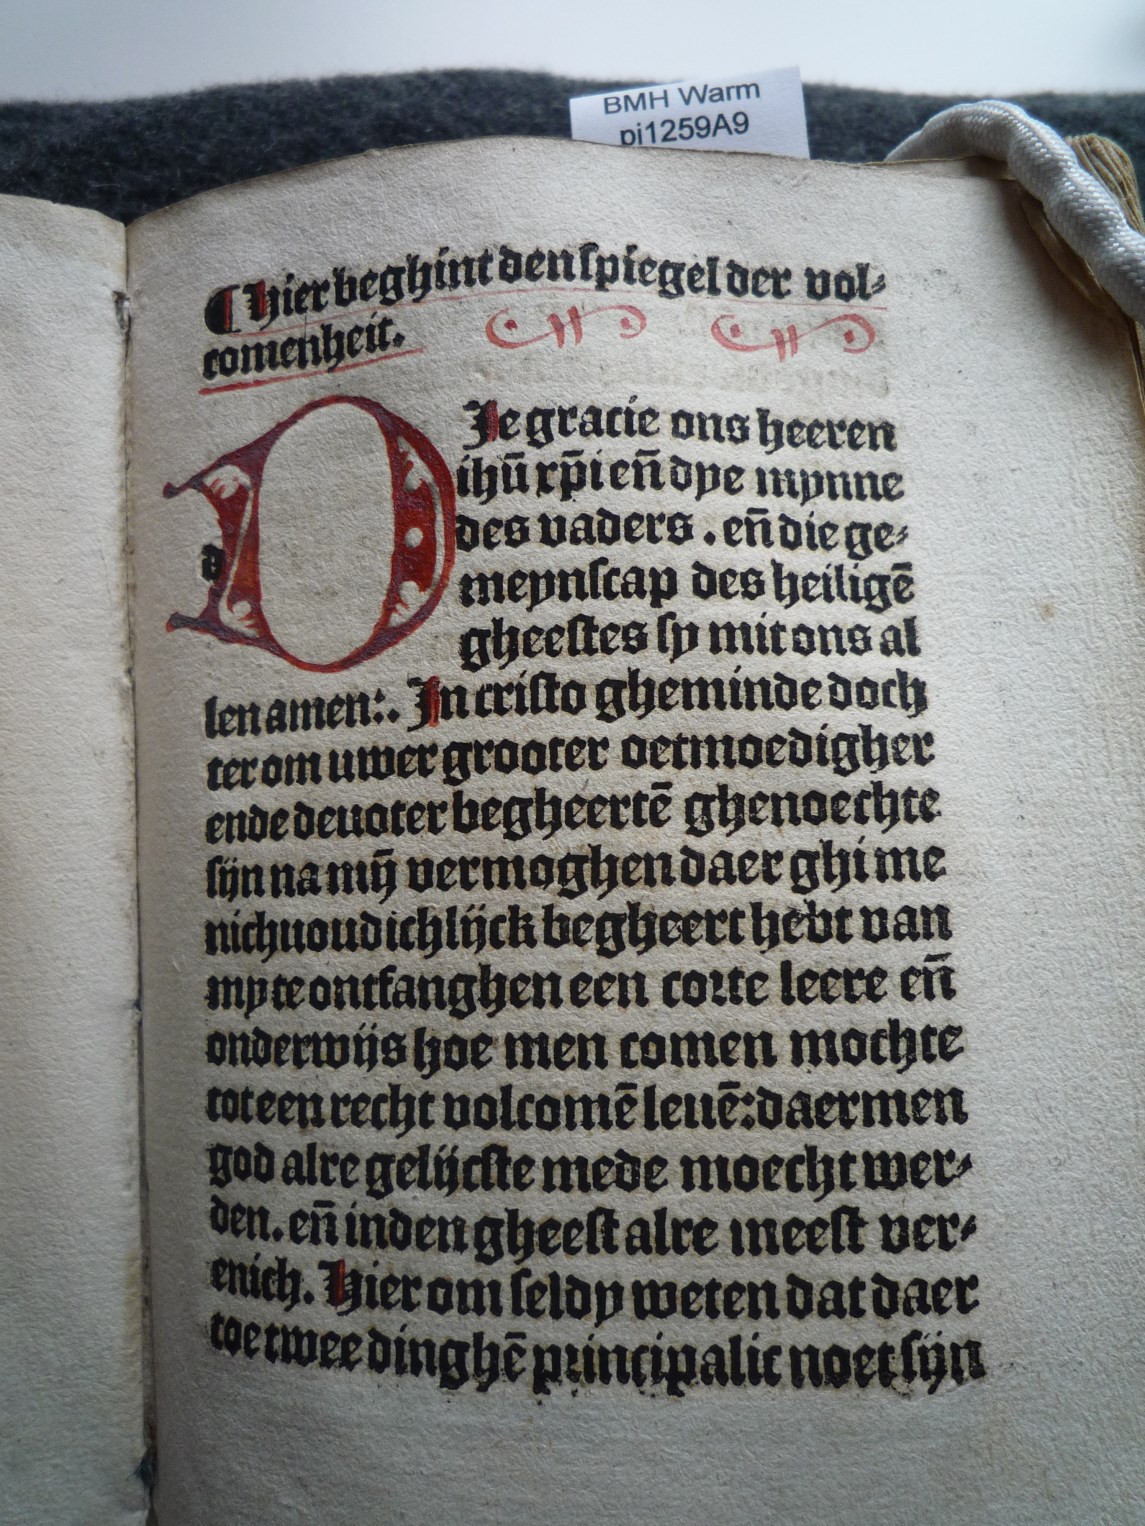 BMH Warm
pi1259A9
¶ hier beghint den spiegel der vol⸗
comenheit.
DIe gracie ons heeren
ihū xp̄i en̄ dye mynne
des vaders . en̄ die ge⸗
meynscap des heiligē
gheestes sy mit ons al
len amen:. In cristo gheminde doch
ter om uwer grooter oetmoedigher
ende deuoter begheertē ghenoechte
sijn na mȳ vermoghen daer ghi me
nichuoudichlijck begheert hebt van
my te ontfanghen een corte leere en̄
onderwijs hoe men comen mochte
tot een recht volcomē leuē: daer men
god alre gelijcste mede moecht wer⸗
den. en̄ in den gheest alre meest ver⸗
enich. Hier om seldy weten dat daer
toe twee dinghē principalic noet sijn